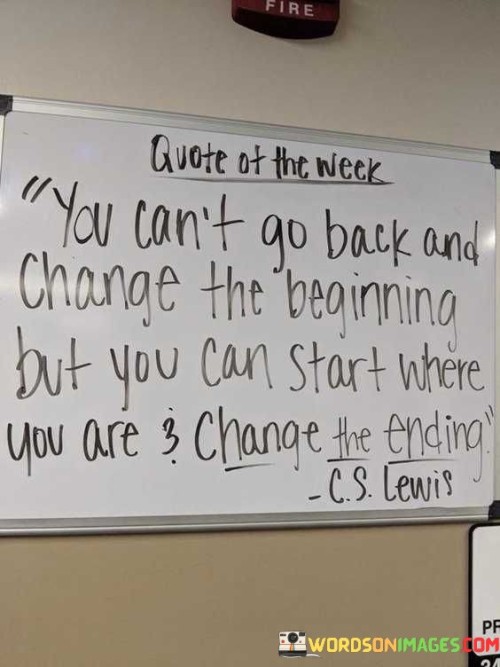 FIRE
Quote of the week
"You can't go back and
change the beginning
but you can start where
you are & change the ending."
- C.S. Lewis
PR
WORDSONIMAGES.COM